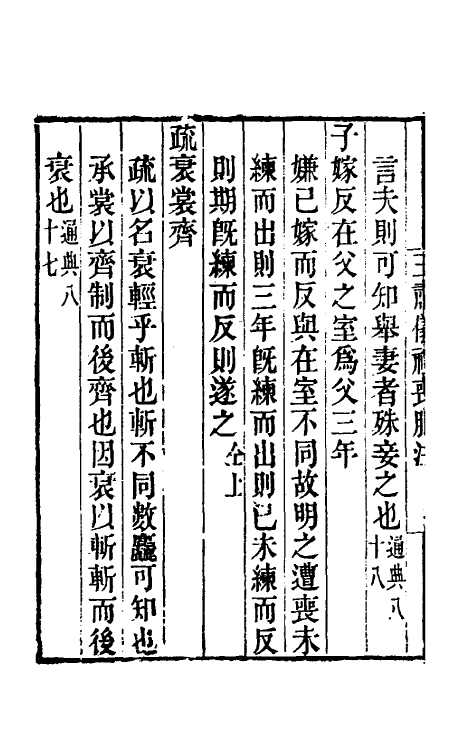 王肅儀禮喪服注
言夫則可知舉妻者殊妾之也通典八十八
子嫁反在父之室爲父三年
嫌已嫁而反與在室不同故明之遭喪未
練而出則三年旣練而出則已未練而反
則期旣練而反則遂之仝上
疏衰裳齊
疏以名衰輕乎斬也斬不同數麤可知也
承裳以齊制而後齊也因衰以斬斬而後
衰也通典八十七